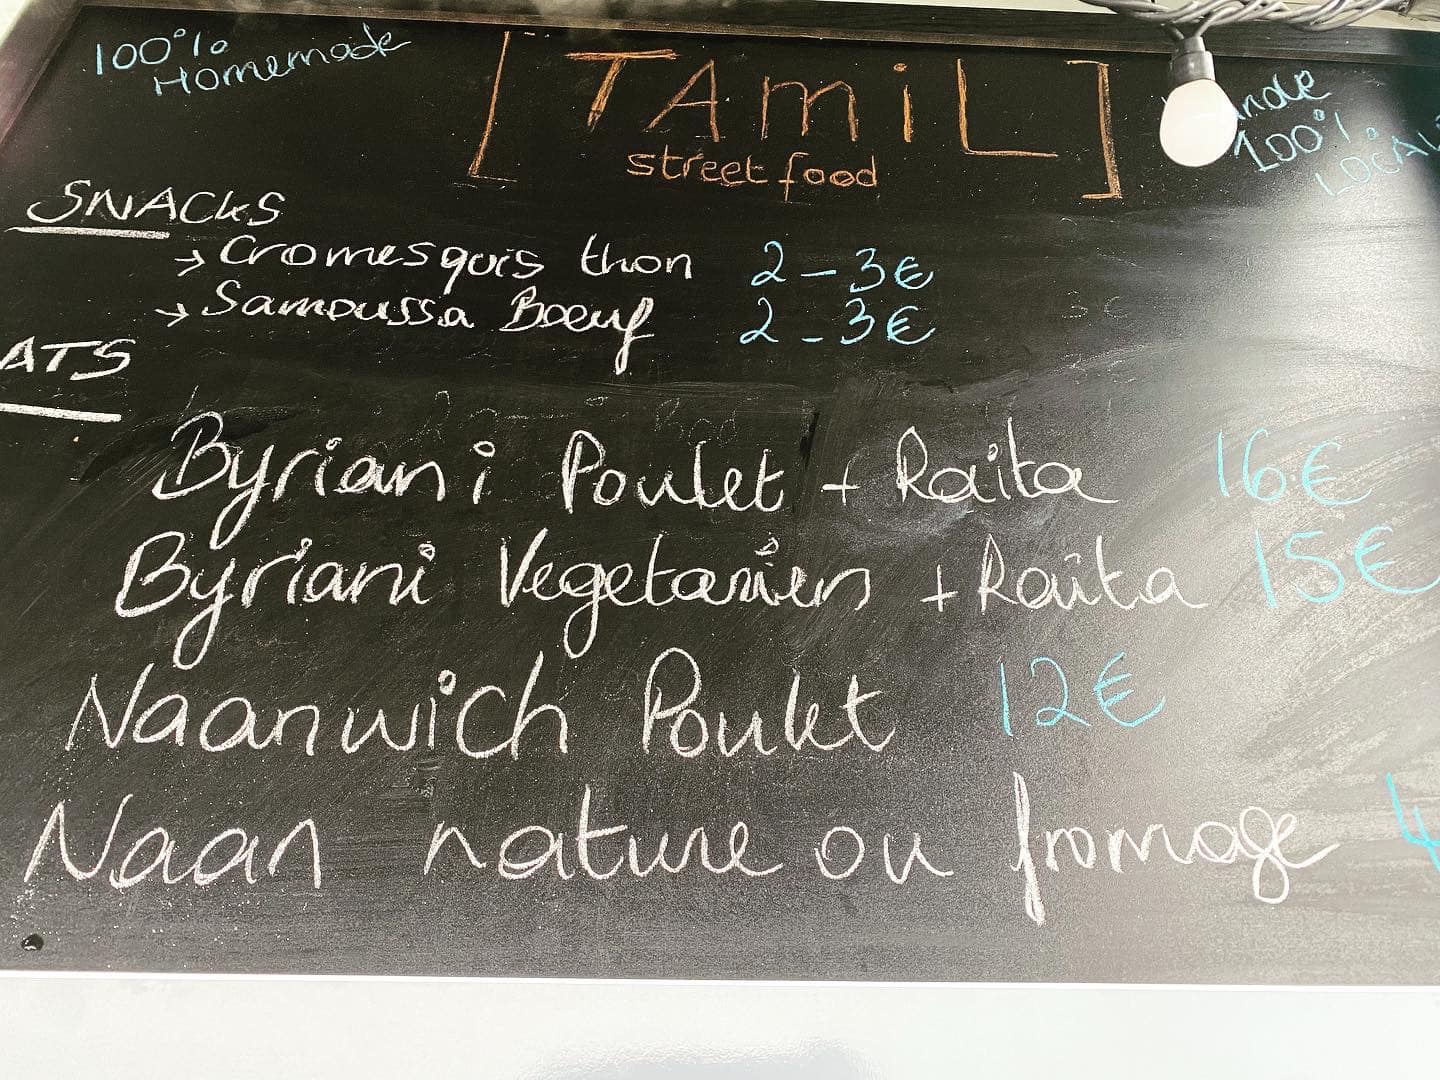 100% Homemade
[TAmiL]
street food
100% LOCAL
SNACKS
→ Cromesquis thon 2 - 3€
→ Samoussa Boeuf 2 - 3€
ATS
Byriani Poulet + Raita 16€
Byriani Vegetarien + Raita 15€
Naanwich Poulet 12€
Naan nature ou fromage 4